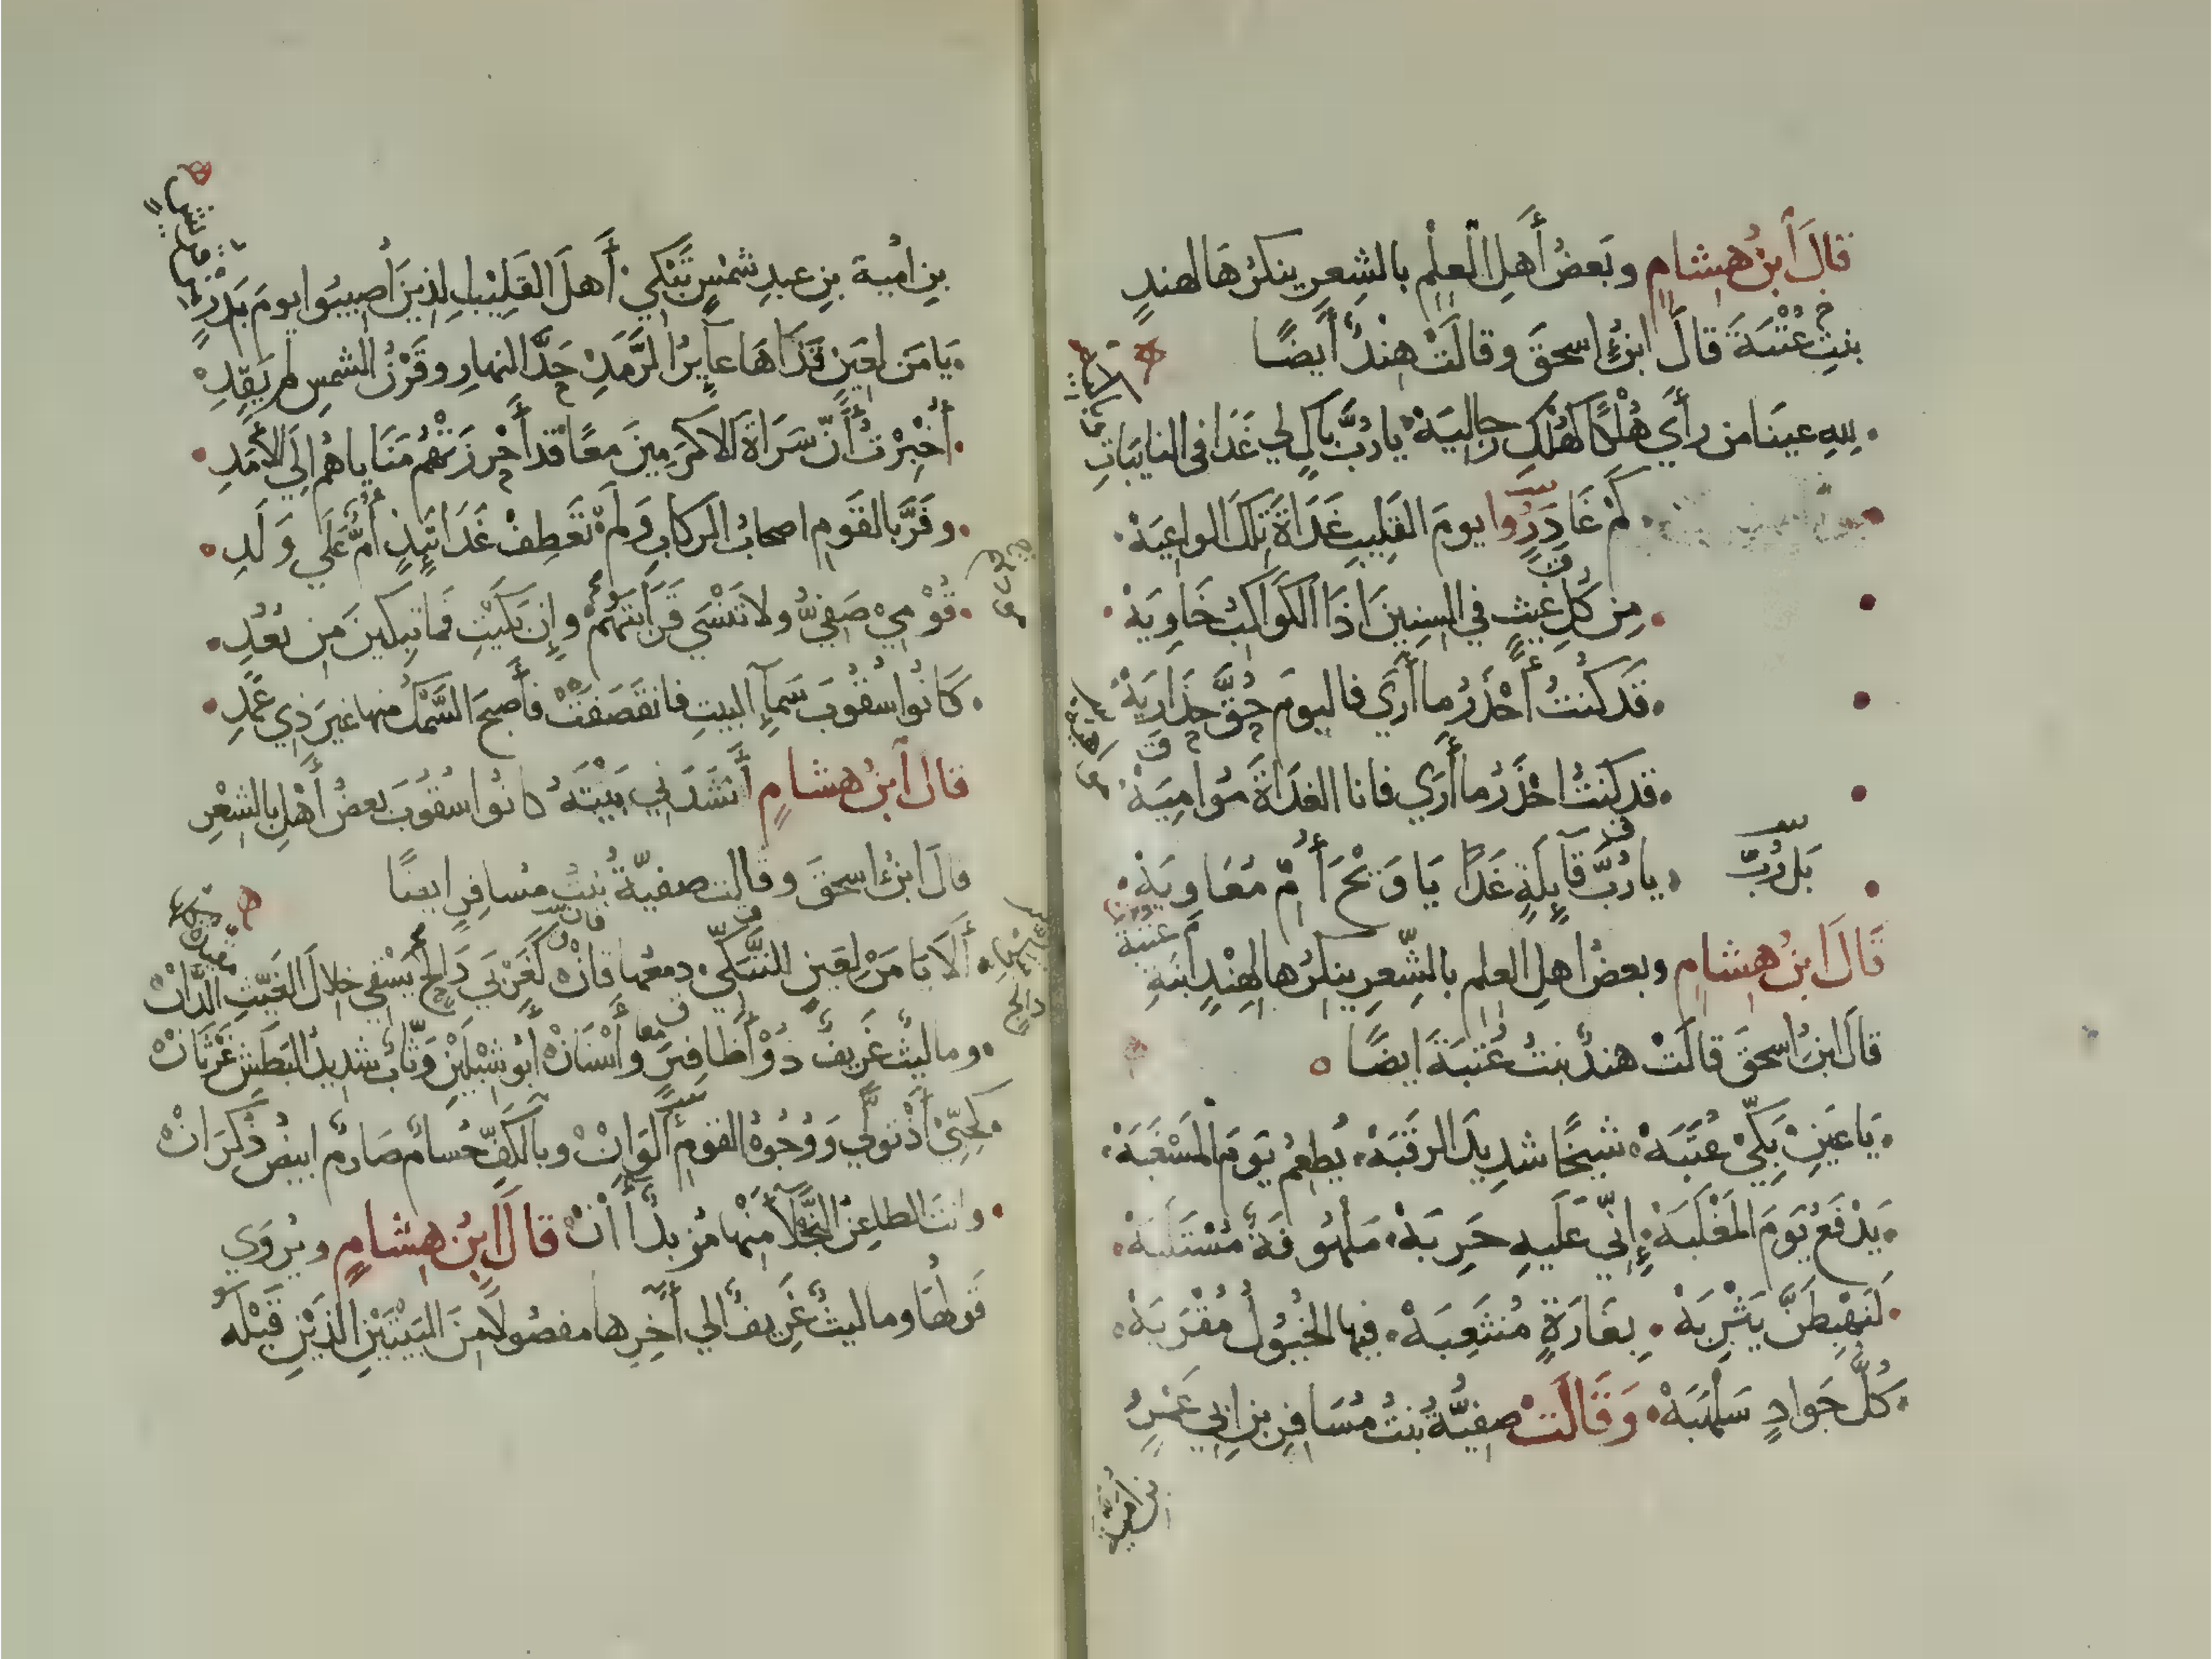 قالَ ابنُ هِشامٍ وبَعضُ أَهلِ العِلْمِ بالشِعرِ ينكرُهَا لهندٍ
بنتِ عُتْبَةَ قالَ ابنُ اسحقَ وقالَتْ هِنْدُ أيضًا
للهِ عينَا من رأَي هُلْكًا كهُلْكِ رجاليَهْ يا رُبَّ باكٍ لي غَدًا في النايبَاتِ
كَمْ غَادَرُوا يومَ القَلِيبِ غَدَاةَ تِلكَ الواعِيَهْ
مِن كُلِ غيثٍ في السِنِينَ اذَا الكَواكبُ خَاوِيَهْ
قَد كنتُ أَحْذَرُ ما أَرَي فاليومَ حُقَّ حِذَارِيَهْ
قد كنتُ احْذَرُ ما أَرَي فانا الغدَاةَ مُوامِيَهْ
يا رُبَّ قآيِلَةٍ غَدًا يَا وَيْحَ أُمِّ مُعَاوِيَهْ
بَل رُبَّ
قَالَ ابنُ هِشامٍ وبعضُ اهلِ العلمِ بالشِّعرِ ينكرُها لهِنْدٍ ابنَةِ
عتبة
قالَ ابنُ اسحقَ قالَتْ هندُ بنتُ عُتبَةَ ايضًا
يَا عَينِ بَكِّي عُتبَهْ شيخًا شديدَ الرقَبَهْ يُطعِمُ يَومَ المَسْغَبَهْ
يَدْفَعُ يَومَ المَغْلَبَهْ إِنّي عَلَيهِ حَرِبَهْ مَلهُوفَةٌ مُسْتَلَبَهْ
لَنَهْبِطَنَّ يَثْرِبَهْ بِغَارَةٍ مُنثَعِبَهْ فيها الخُيُولُ مُقْرَبَهْ
كُلُّ جَوادٍ سَلهَبَهْ وَقَالَتْ صفِيَّةُ بنتُ مُسَافِرِ بنِ ابِي عَمْرٍو
بنِ امُيةَ بنِ عبدِ شمْسٍ تَبْكي أَهلَ القَلِيْبِ الذِينَ أُصِيبُوا يومَ بَدْرٍ
يَا مَن لِعَينٍ قَذَاهَا عآيِرُ الرَّمَدِ حَدَّ النهارِ وقَرْنُ الشمسِ لم يَقِدِ
أُخْبِرْتُ أَنّ سَرَاةَ الاكرَمِينَ مَعًا قد أَحْرزَتْهُم مَنَايَاهُم إلَي الأمَدِ
وفَرَّ بالقَومِ اصحابُ الركابِ وَلمْ تَعْطِفْ غَدَاتَيِذٍ أُمٌّ عَلَي وَلَدِ
قُوْمِيْ صَفِيُّ ولا تَنْسَي قَرَابَتَهُمْ وإِن بَكَيْتِ فَما تبكينَ مِن بُعُدِ
كَانُوا سُقُوبَ سَمآءِ البيتِ فانقَصَفَتْ فأصبَحَ السَّمْكُ منها غيرَ ذِي عَمَدِ
قالَ ابنُ هشامٍ أَنشَدَنِي بَيْتَهُ كانُوا سُقُوبَ بعضُ أَهْلِ بالشِعْرِ
قالَ ابنُ اسحقَ وقالت صفيّةُ بنتُ مُسافِرٍ ايضًا
أَلَا يَا مَنْ لِعَينٍ للتَّبَكّي دمعُها فانْ كَغَرْبَي دَالجٍ يَسْقي خلالَ الغَيّثِ الدَّانْ
وما ليثُ غَرِيفٍ ذُوْ أَظافِيرَ وأَسْنَانْ أَبُو شِبْلَيْنِ وَثّابٌ شديدُ البَطْشِ غَرْثَانْ
كَحِبِّيْ أذْ تَولَّي وَوُجُوهُ القومِ ألوَانْ وبالكَفِّ حُسامٌ صَارِمٌ ابيضُ ذُكرَانْ
وانتَ الطاعِنُ النَّجْلآ مِنْها مُزبِدٌ آنْ قالَ ابنُ هِشامٍ ويُروَي
قَولُهَا وما ليثُ غَرِيفٍ الي آخِرِها مفصُولًا مِنَ البَيْتَيْنِ الذَيْنِ قَبْلَهُ